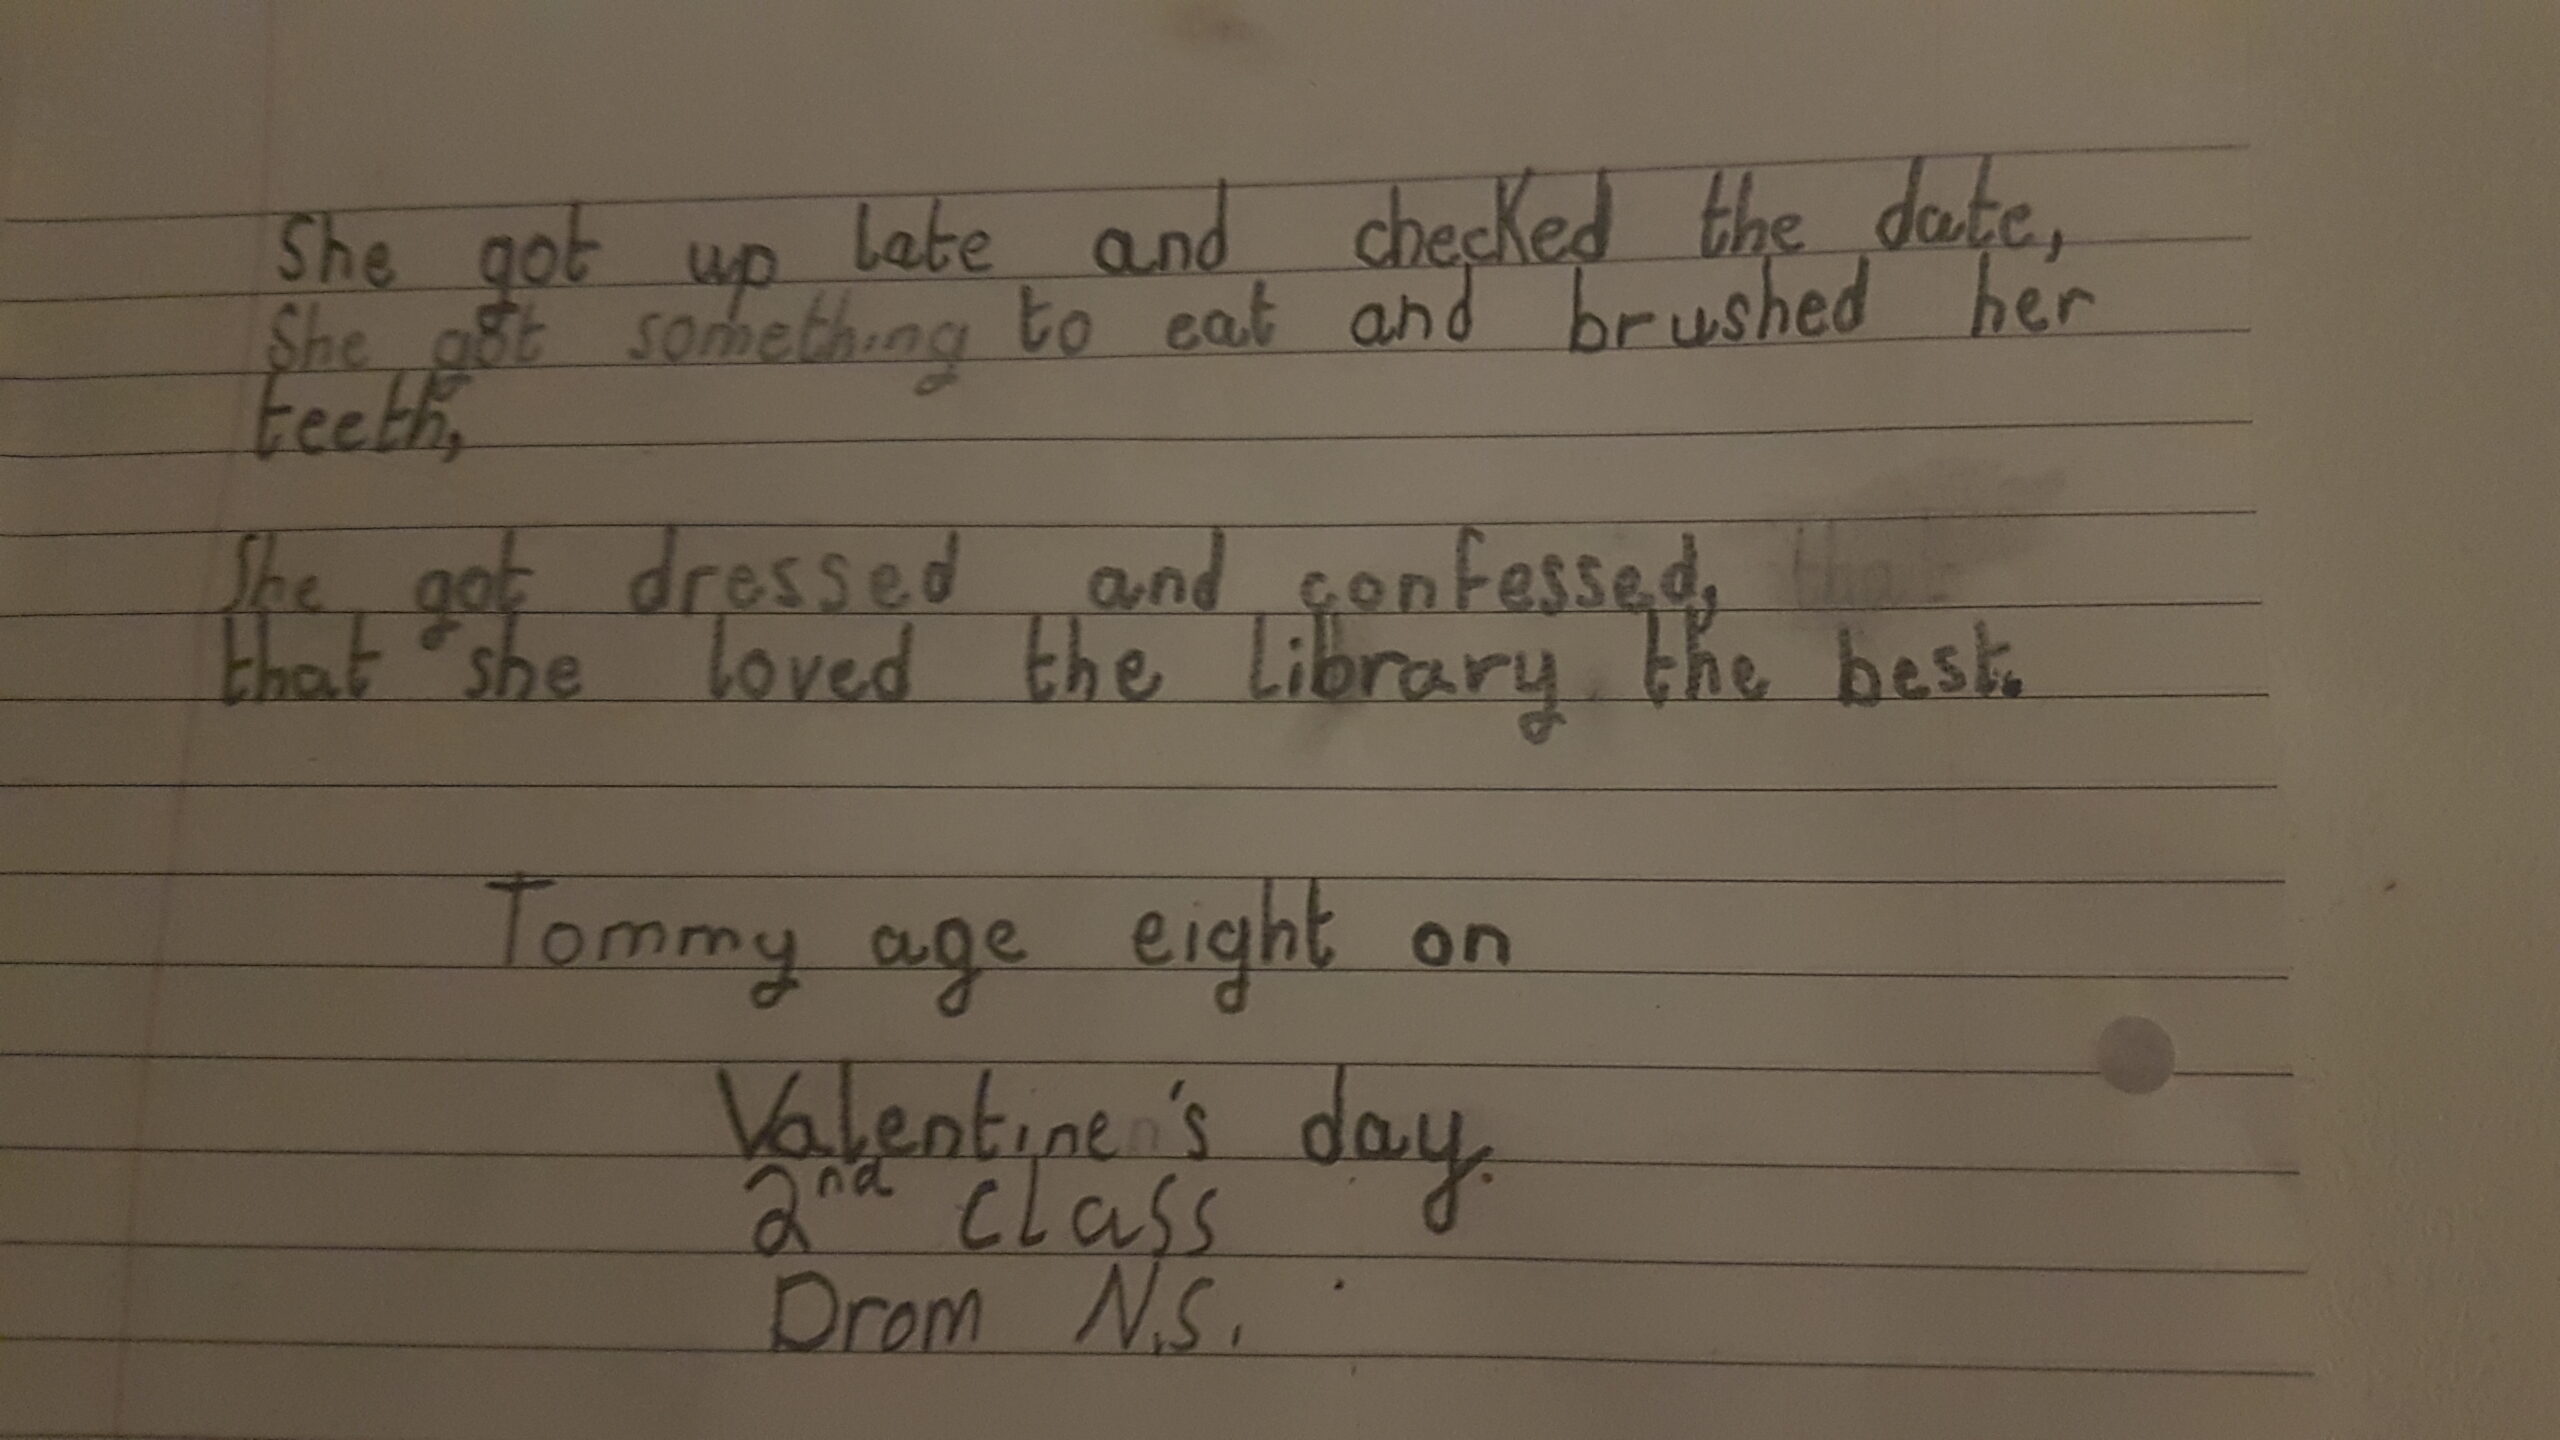 She got up late and checked the date,
She got something to eat and brushed her
teeth,
She got dressed and confessed,
that she loved the library the best.
Tommy age eight on
Valentine's day.
2nd class
Drom N.S.